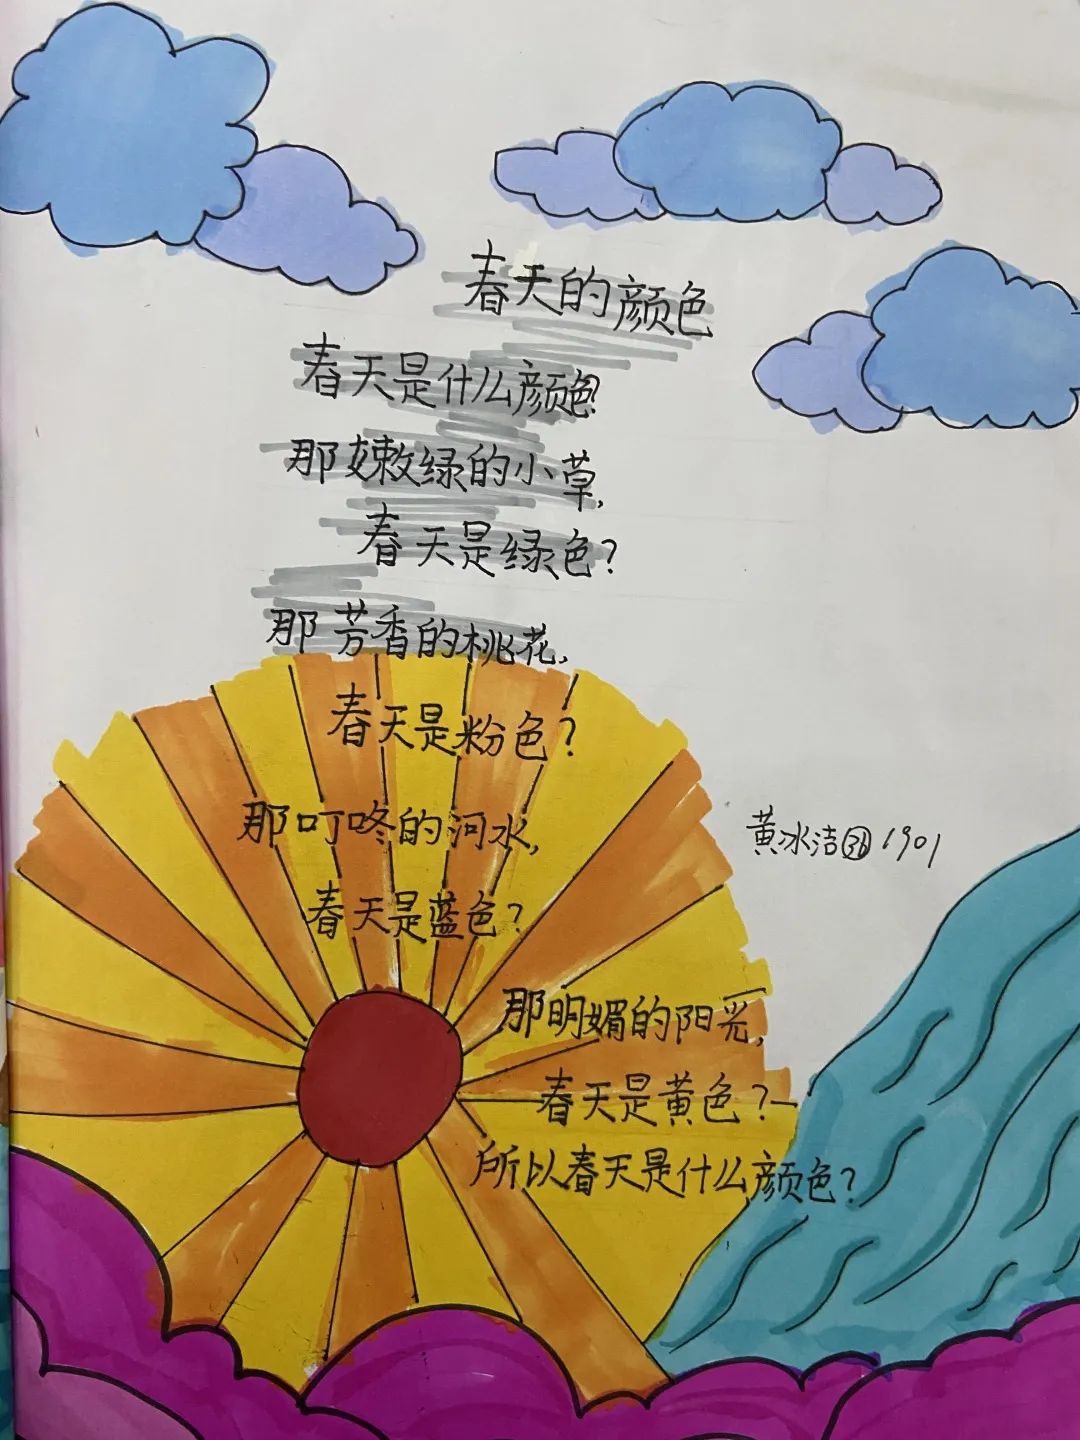 春天的颜色
春天是什么颜色?
那嫩绿的小草,
春天是绿色?
那芳香的桃花,
春天是粉色?
那叮咚的河水,
春天是蓝色?
那明媚的阳光,
春天是黄色?
所以春天是什么颜色?
黄冰洁 36 1901